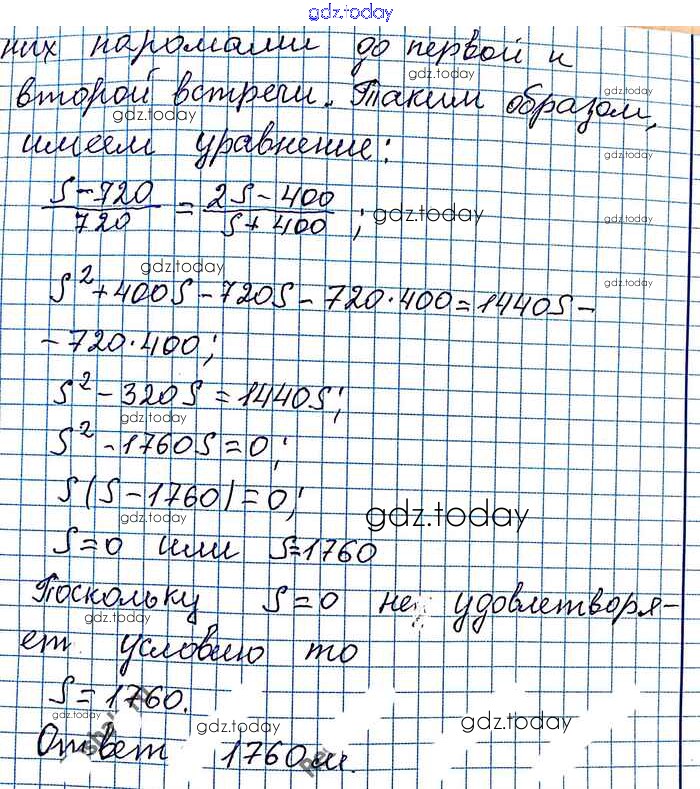 gdz.today
них паромами до первой и
gdz.today
второй встречи. Таким образом,
gdz.today
gdz.today
имеем уравнение:
gdz.today
S-720/720 = 2S-400/S+400 ; gdz.today
gdz.today
gdz.today
S²+400S-720S-720·400=1440S-
gdz.today
-720·400;
gdz.today
S²-320S=1440S;
gdz.today
S²-1760S=0;
gdz.today
S(S-1760)=0;
gdz.today gdz.today
S=0 или S=1760
gdz.today
Поскольку S=0 не удовлетворя-
gdz.today gdz.today
ет условию то
S=1760.
gdz.today gdz.today gdz.today
Ответ 1760м.